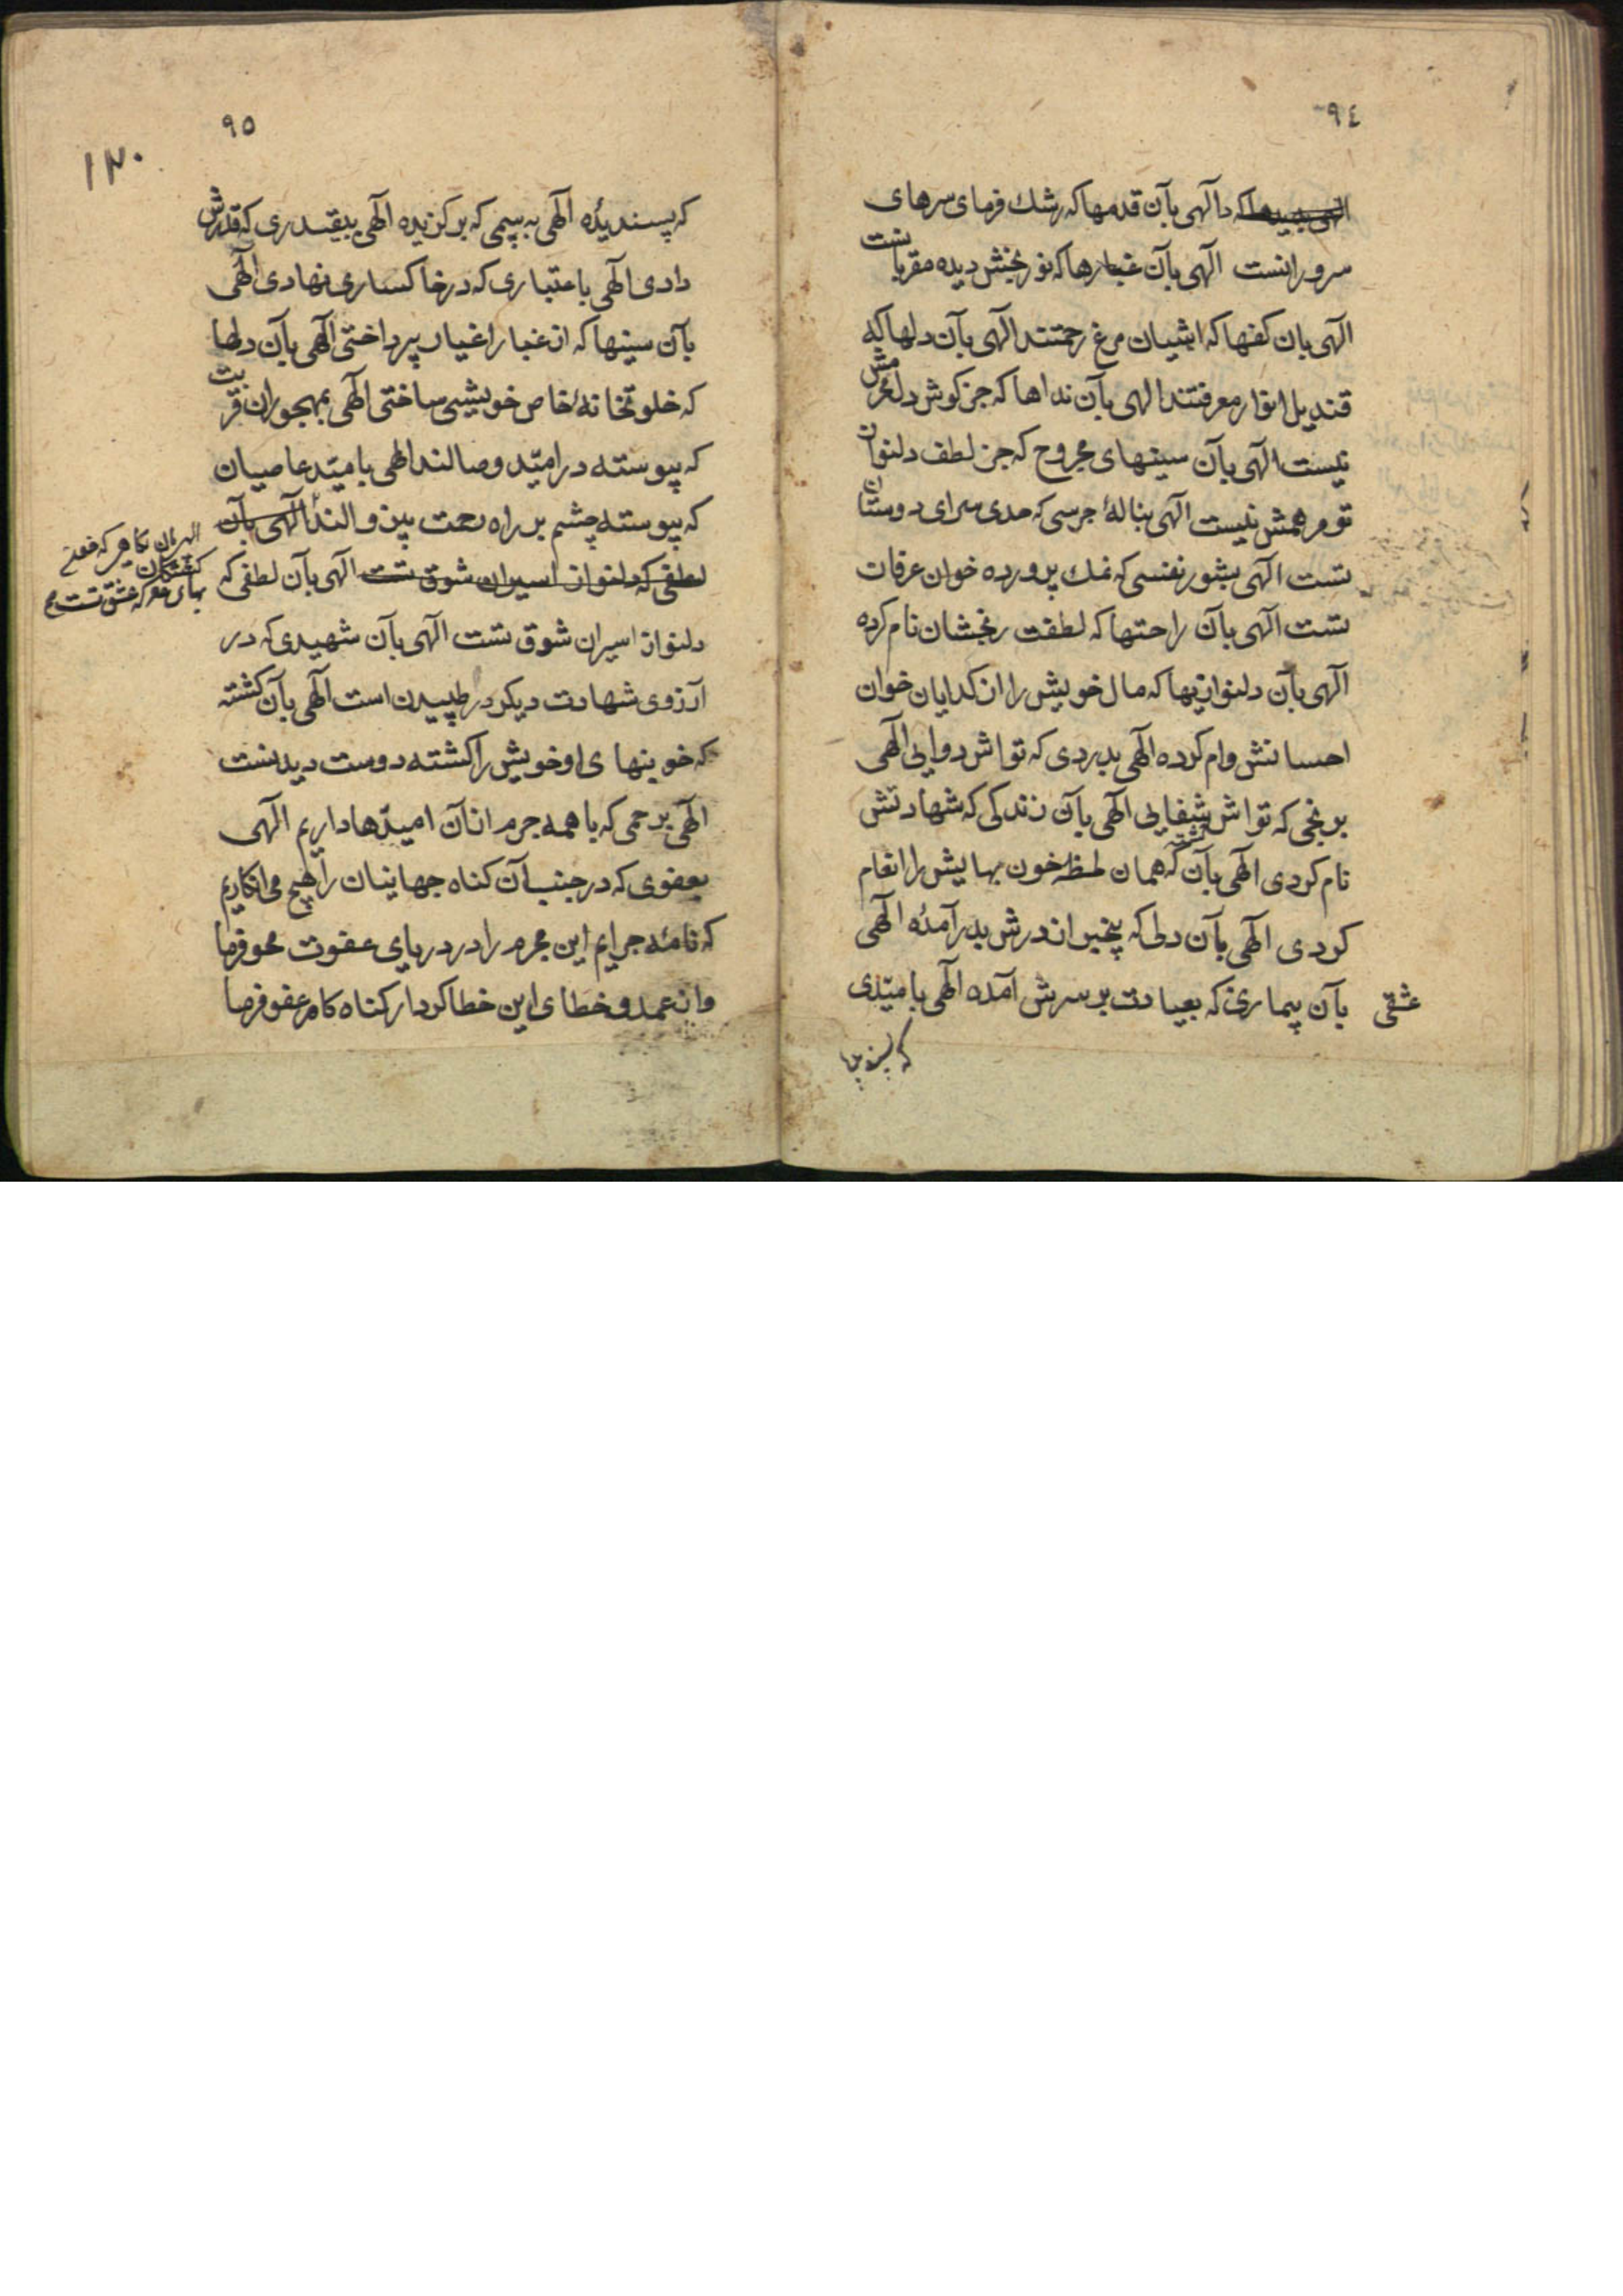 ٩٤
الهی بدیدها که دا الهی بآن قدمها که رشك فرمای سرهای
سرورانست الهی بآن غبارها که نوربخش دیده مقربانست
الهی بان کفها که اشیان مرغ رحمتند الهی بآن دلها که
قندیل انوار معرفتند الهی بآن نداها که جز کوش دل محرمش
نیست الهی بآن سینهای مجروح که جز لطف دلنوازن
تو مرهمش نیست الهی بنالهٔ جرسی که حدی سرای دوستان
تست الهی بشور نفسی که نمك پرورده خوان عرفات
تست الهی بآن راحتها که لطفت رنجشان نام کرده
الهی بآن دلنوازیها که مال خویش را از کدایان خوان
احسانش وام کرده الهی بدردی که تواش دوایی الهی
برنجی که تواش شفایی الهی بآن زندکی که شهادتش
نام کردی الهی بآن کشته که همان لحظه خون بهایش را انعام
کردی الهی بآن دلی که پیخبر از درش بدرآمدهٔ الهی
بآن بیماری که بعیادت بر سرش آمده الهی بامیدی
عشقی
٩٥
١٣٠
که پسندیدهٔ الهی به بیمی که برکزیده الهی ببیقدری که قدرش
دادی الهی باعتباری که در خاکساری نهادی الهی
بآن سینها که از غبار اغیار پرداختی الهی بآن دلها
که خلوتخانهٔ خاص خویشی ساختی الهی بمهجوران قربت
که پیوسته در امید وصالند الهی بامید عاصیان
که پیوسته چشم بر راه رحمت بین والند الهی بآن
لطفی که دلنواز اسیران شوق تست الهی بآن لطفی که
دلنواز اسیران شوق تست الهی بآن شهیدی که در
آرزوی شهادت دیکر در طپیدن است الهی بآن کشته
که خونبهای او خویش را کشته دوست دیدنست
الهی برحمی که با همه جرم از آن امیدها داریم الهی
بعفوی که در جنب آن کناه جهانیان را هیچ می انکاریم
که نامهٔ جرایم این مجرم را در دریای عفوت محو فرما
و از عمد و خطای این خطا کردار کناه کام عفو فرما
کشتکان
معرکه عشق تست